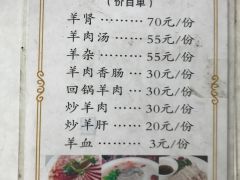 （价目单）
羊肾 ········· 70元/份
羊肉汤 ······ 55元/份
羊杂 ········· 55元/份
羊肉香肠 ··· 30元/份
回锅羊肉 ··· 30元/份
炒羊肉 ······ 30元/份
炒羊肝 ······ 20元/份
羊血 ········· 3元/份